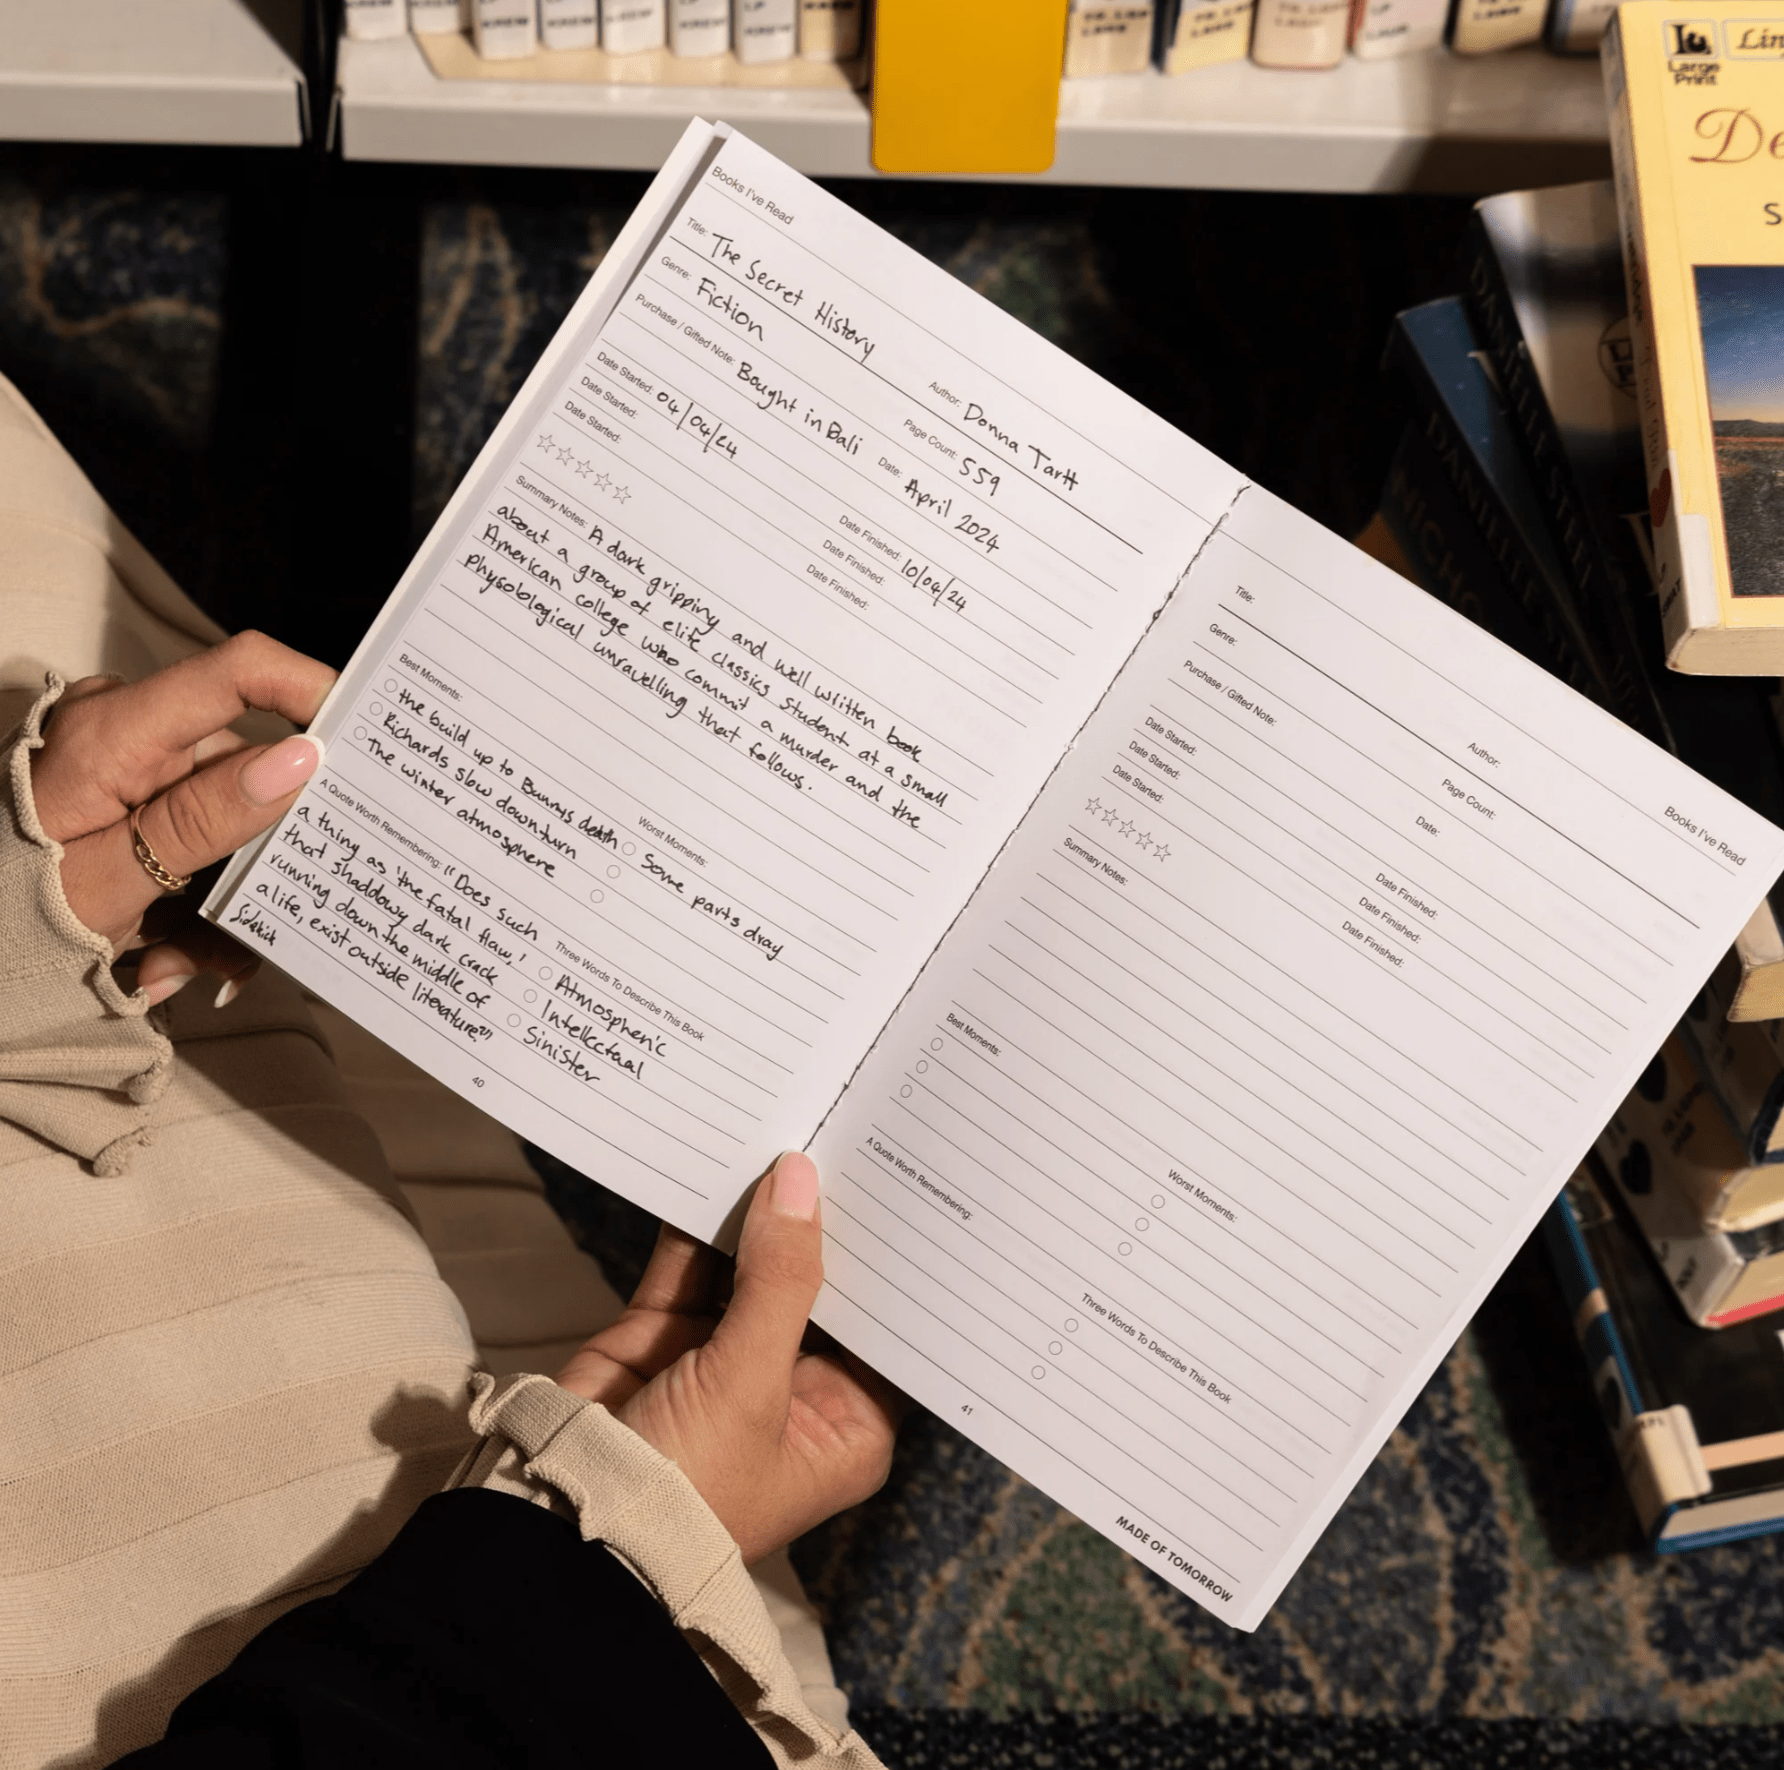 Books I've Read
Title: The Secret History
Author: Donna Tartt
Genre: Fiction
Page Count: 559
Purchase / Gifted Note: Bought in Bali
Date: April 2024
Date Started: 04/04/24
Date Finished: 10/04/24
Date Started:
Date Finished:
Date Started:
Date Finished:
Summary Notes: A dark gripping and well written book
about a group of elite classics student at a small
American college who commit a murder and the
physobological unravelling that follows.
Best Moments:
the build up to Bunnys death
Richards slow downturn
The winter atmosphere
Worst Moments:
Some parts dray
A Quote Worth Remembering: "Does such
a thing as 'the fatal flaw,'
that shaddowy dark crack
running down the middle of
a life, exist outside literature?"
Three Words To Describe This Book
Atmospheric
Intellectual
Sinister
40
Books I've Read
Title:
Author:
Genre:
Page Count:
Purchase / Gifted Note:
Date:
Date Started:
Date Finished:
Date Started:
Date Finished:
Date Started:
Date Finished:
Summary Notes:
Best Moments:
Worst Moments:
A Quote Worth Remembering:
Three Words To Describe This Book
41
MADE OF TOMORROW
Large
Print